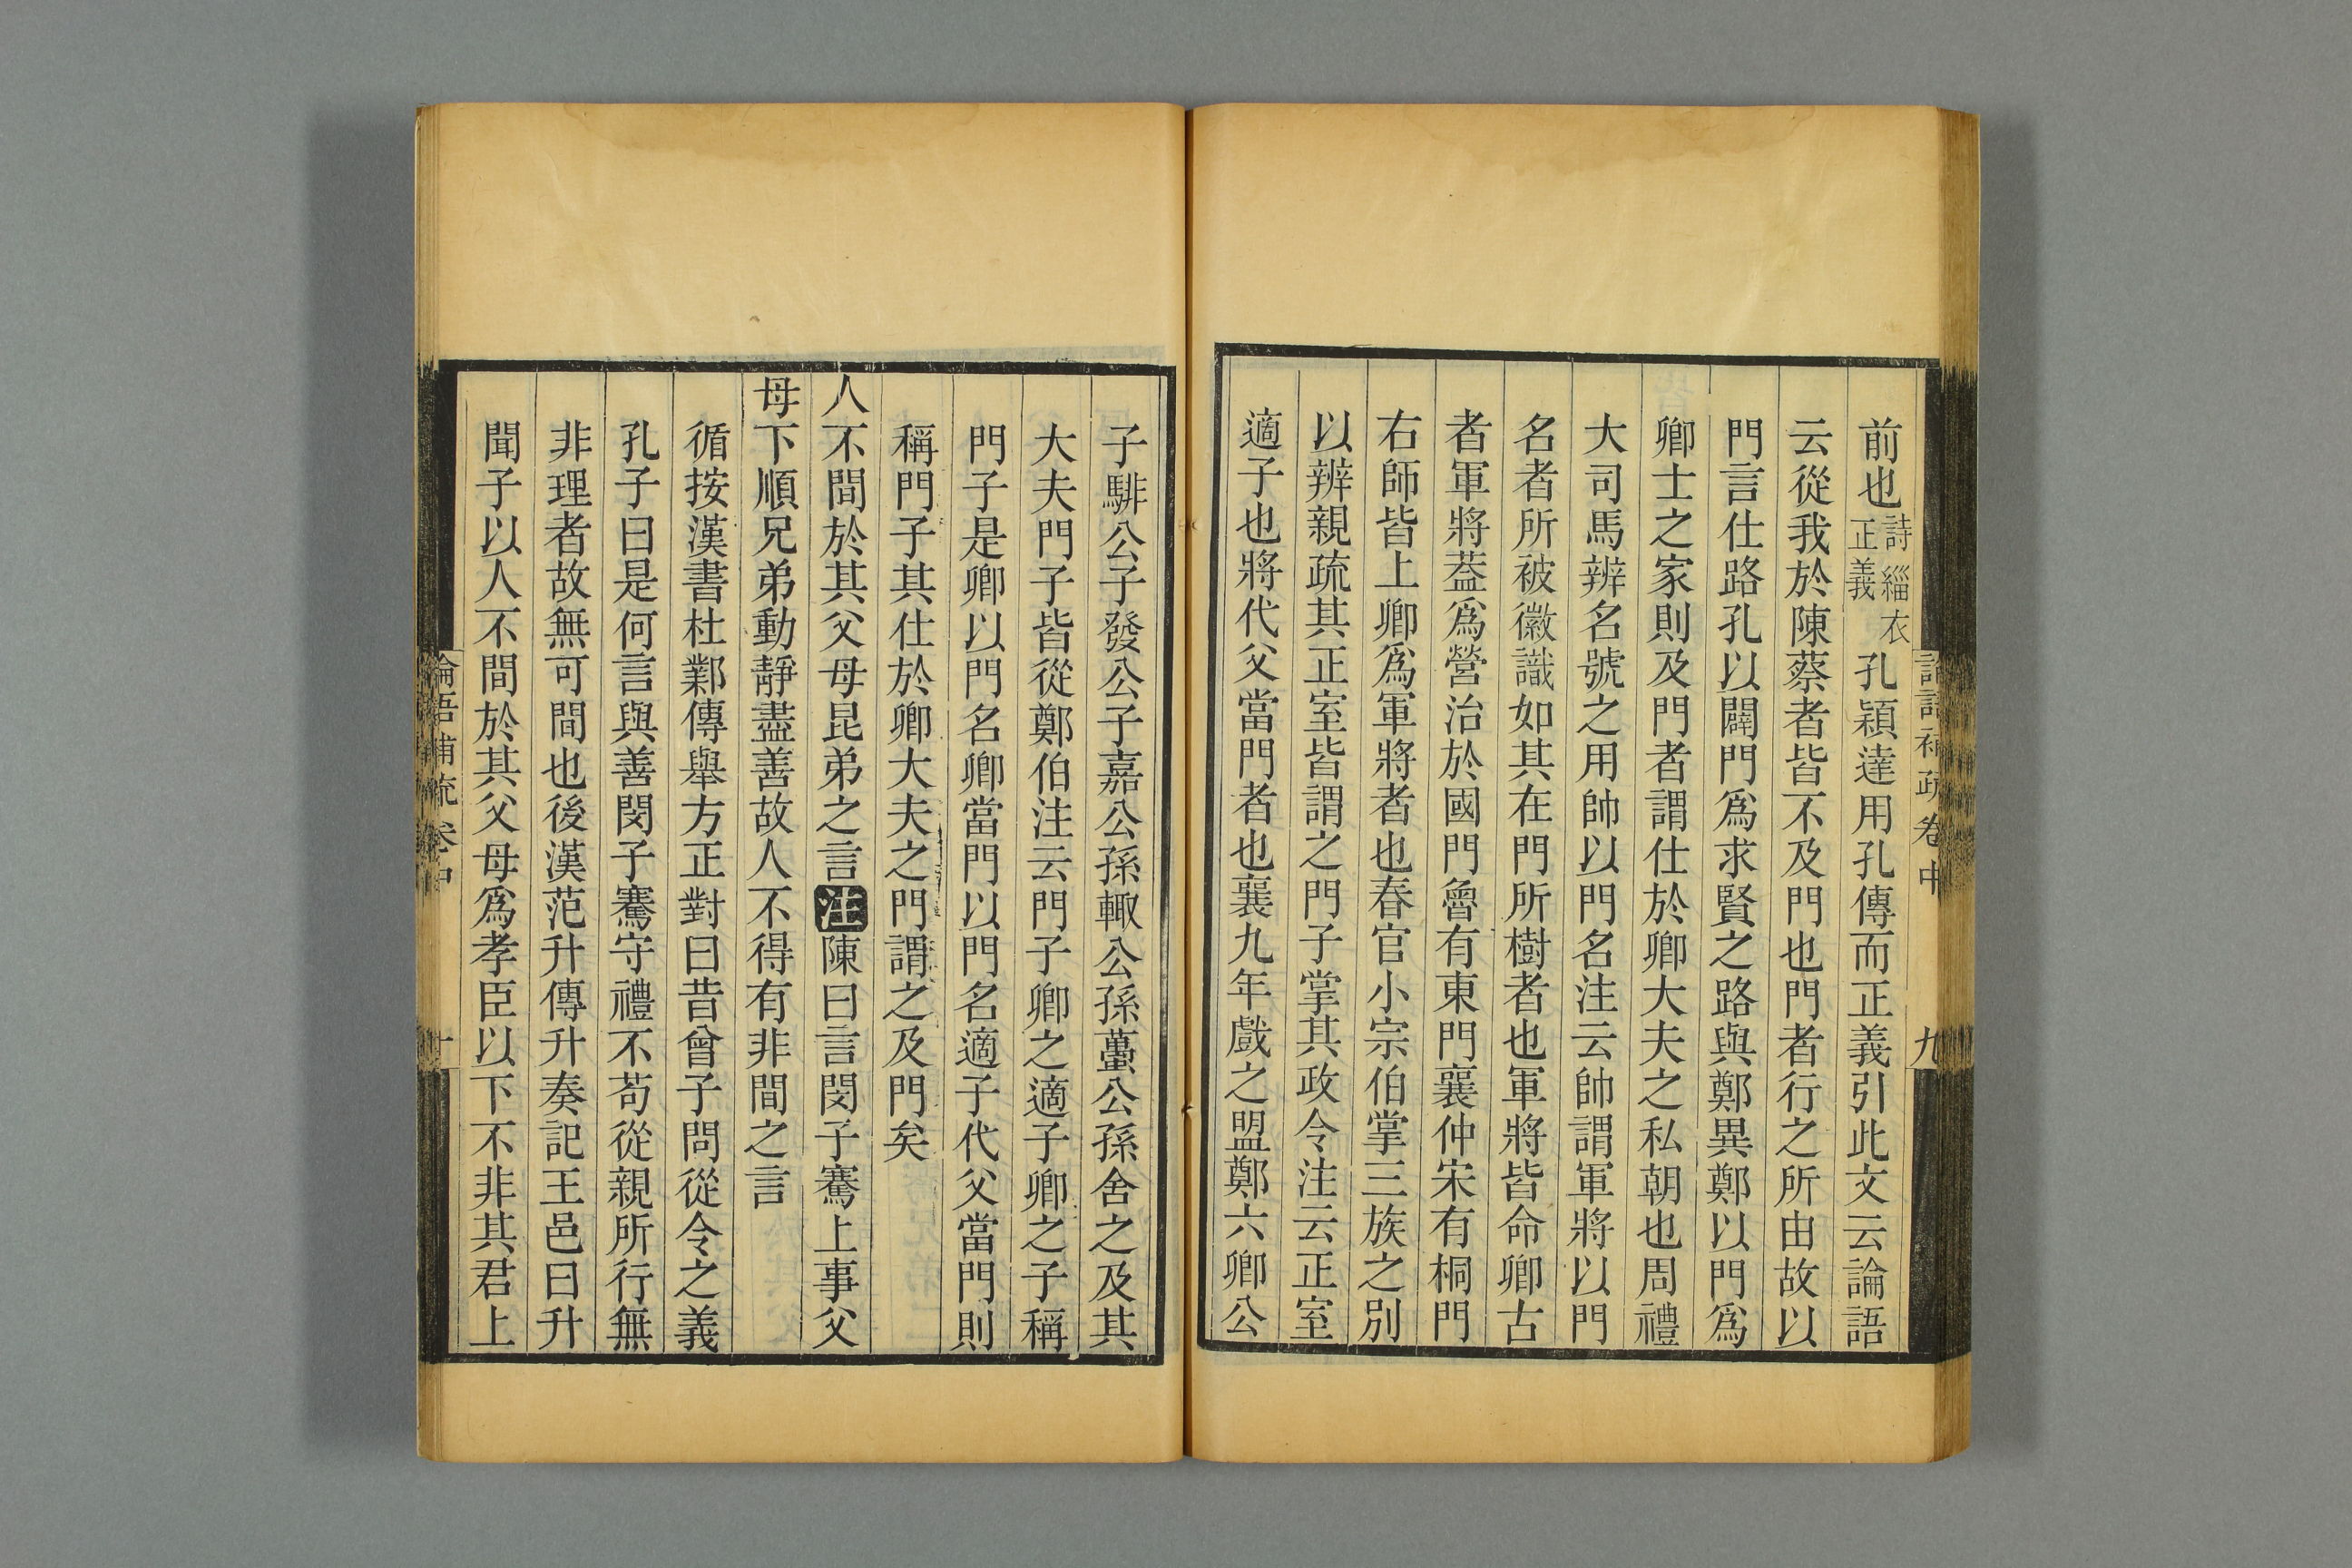 論語補疏卷中
九
前也詩緇衣正義孔穎達用孔傳而正義引此文云論語
云從我於陳蔡者皆不及門也門者行之所由故以
門言仕路孔以闢門爲求賢之路與鄭異鄭以門爲
卿士之家則及門者謂仕於卿大夫之私朝也周禮
大司馬辨名號之用帥以門名注云帥謂軍將以門
名者所被徽識如其在門所樹者也軍將皆命卿古
者軍將葢爲營治於國門魯有東門襄仲宋有桐門
右師皆上卿爲軍將者也春官小宗伯掌三族之別
以辨親疏其正室皆謂之門子掌其政令注云正室
適子也將代父當門者也襄九年戲之盟鄭六卿公
子騑公子發公子嘉公孫輒公孫蠆公孫舍之及其
大夫門子皆從鄭伯注云門子卿之適子卿之子稱
門子是卿以門名卿當門以門名適子代父當門則
稱門子其仕於卿大夫之門謂之及門矣
人不間於其父母昆弟之言注陳曰言閔子騫上事父
母下順兄弟動靜盡善故人不得有非間之言
循按漢書杜鄴傳舉方正對曰昔曾子問從令之義
孔子曰是何言與善閔子騫守禮不苟從親所行無
非理者故無可間也後漢范升傳升奏記王邑曰升
聞子以人不間於其父母爲孝臣以下不非其君上
論語補疏卷中
十